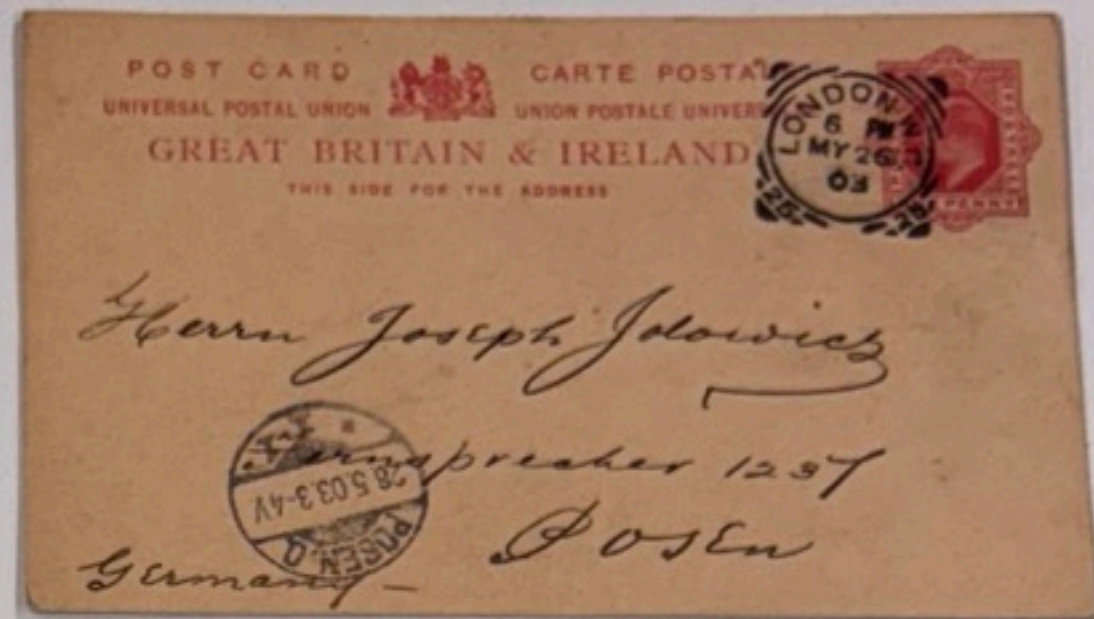 POST CARD CARTE POSTA
UNIVERSAL POSTAL UNION UNION POSTALE UNIVER
GREAT BRITAIN & IRELAND
THIS SIDE FOR THE ADDRESS
LONDON
6 PM
MY 26
03
25 25
PENNY
Herrn Joseph Jolowicz
Fernsprecher 1237
Posen
Germany
POSEN. O
28.5.03.3-4V